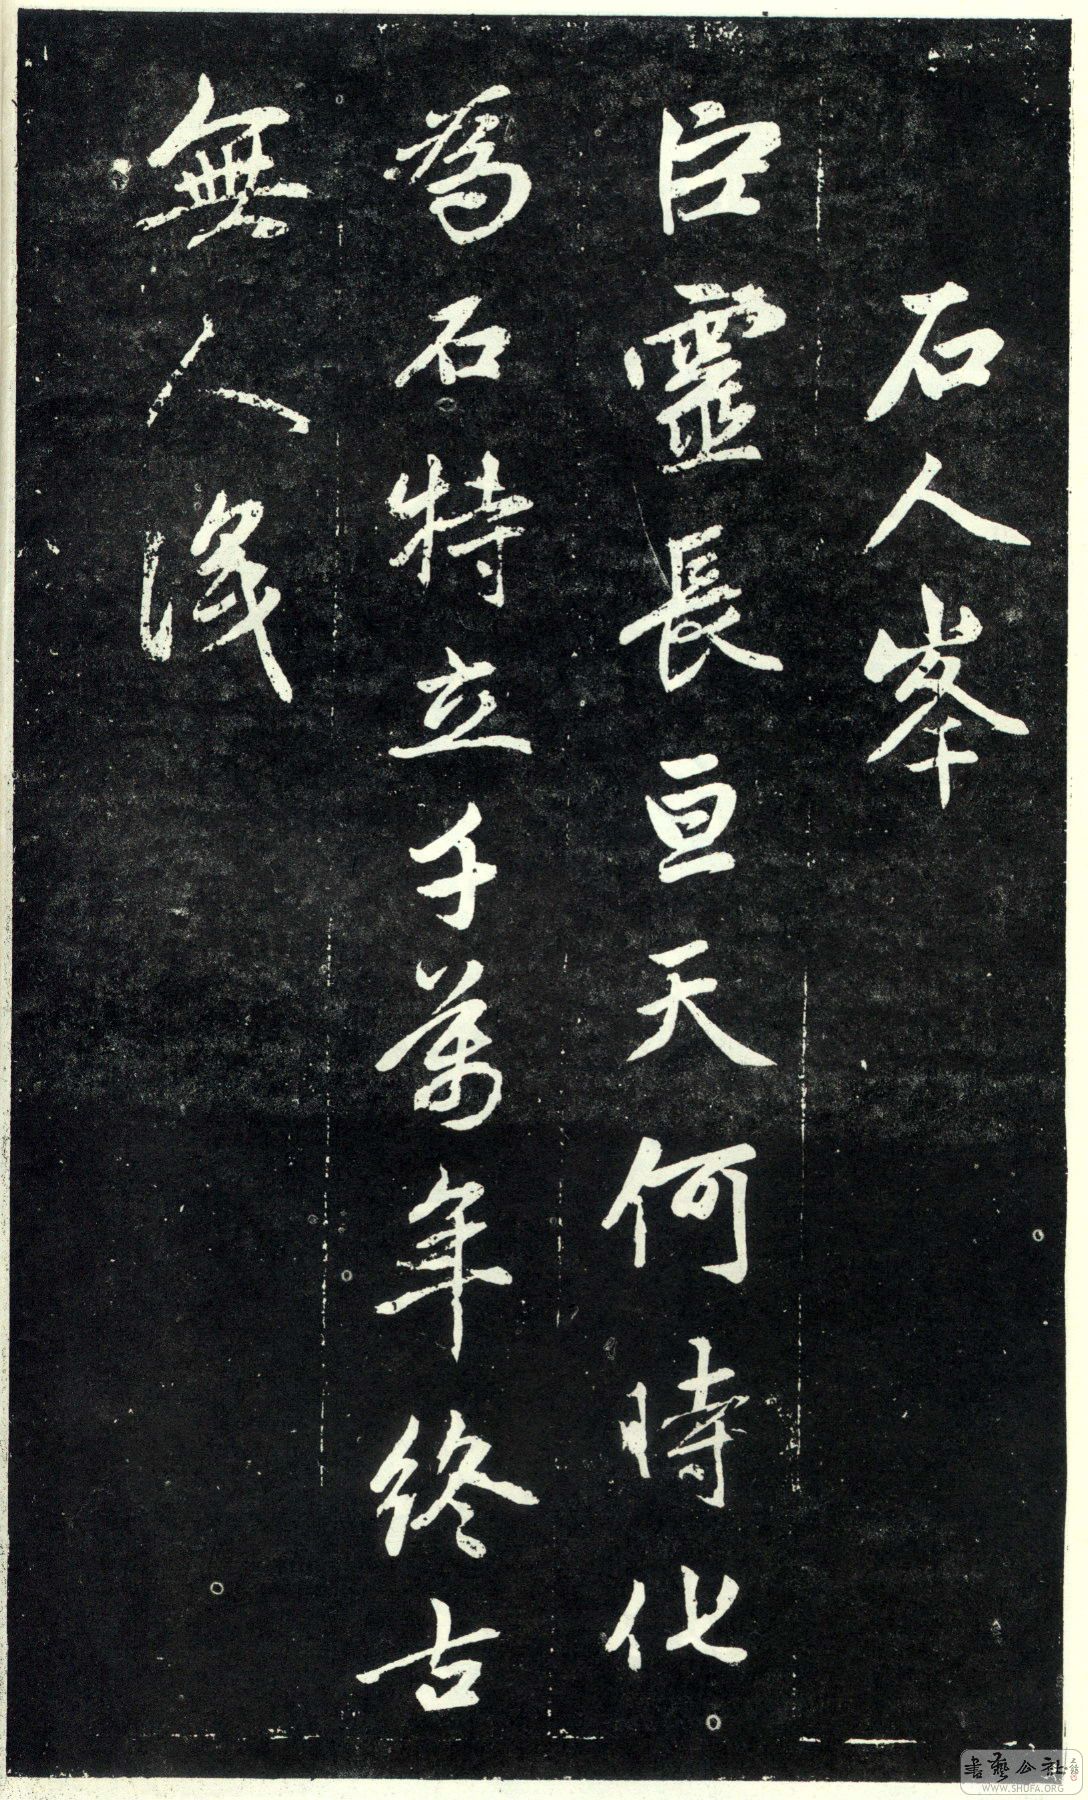 石人峯
巨靈長亘天何時化
為石特立千萬年終古
無人識
書藝公社
WWW.SHUFA.ORG